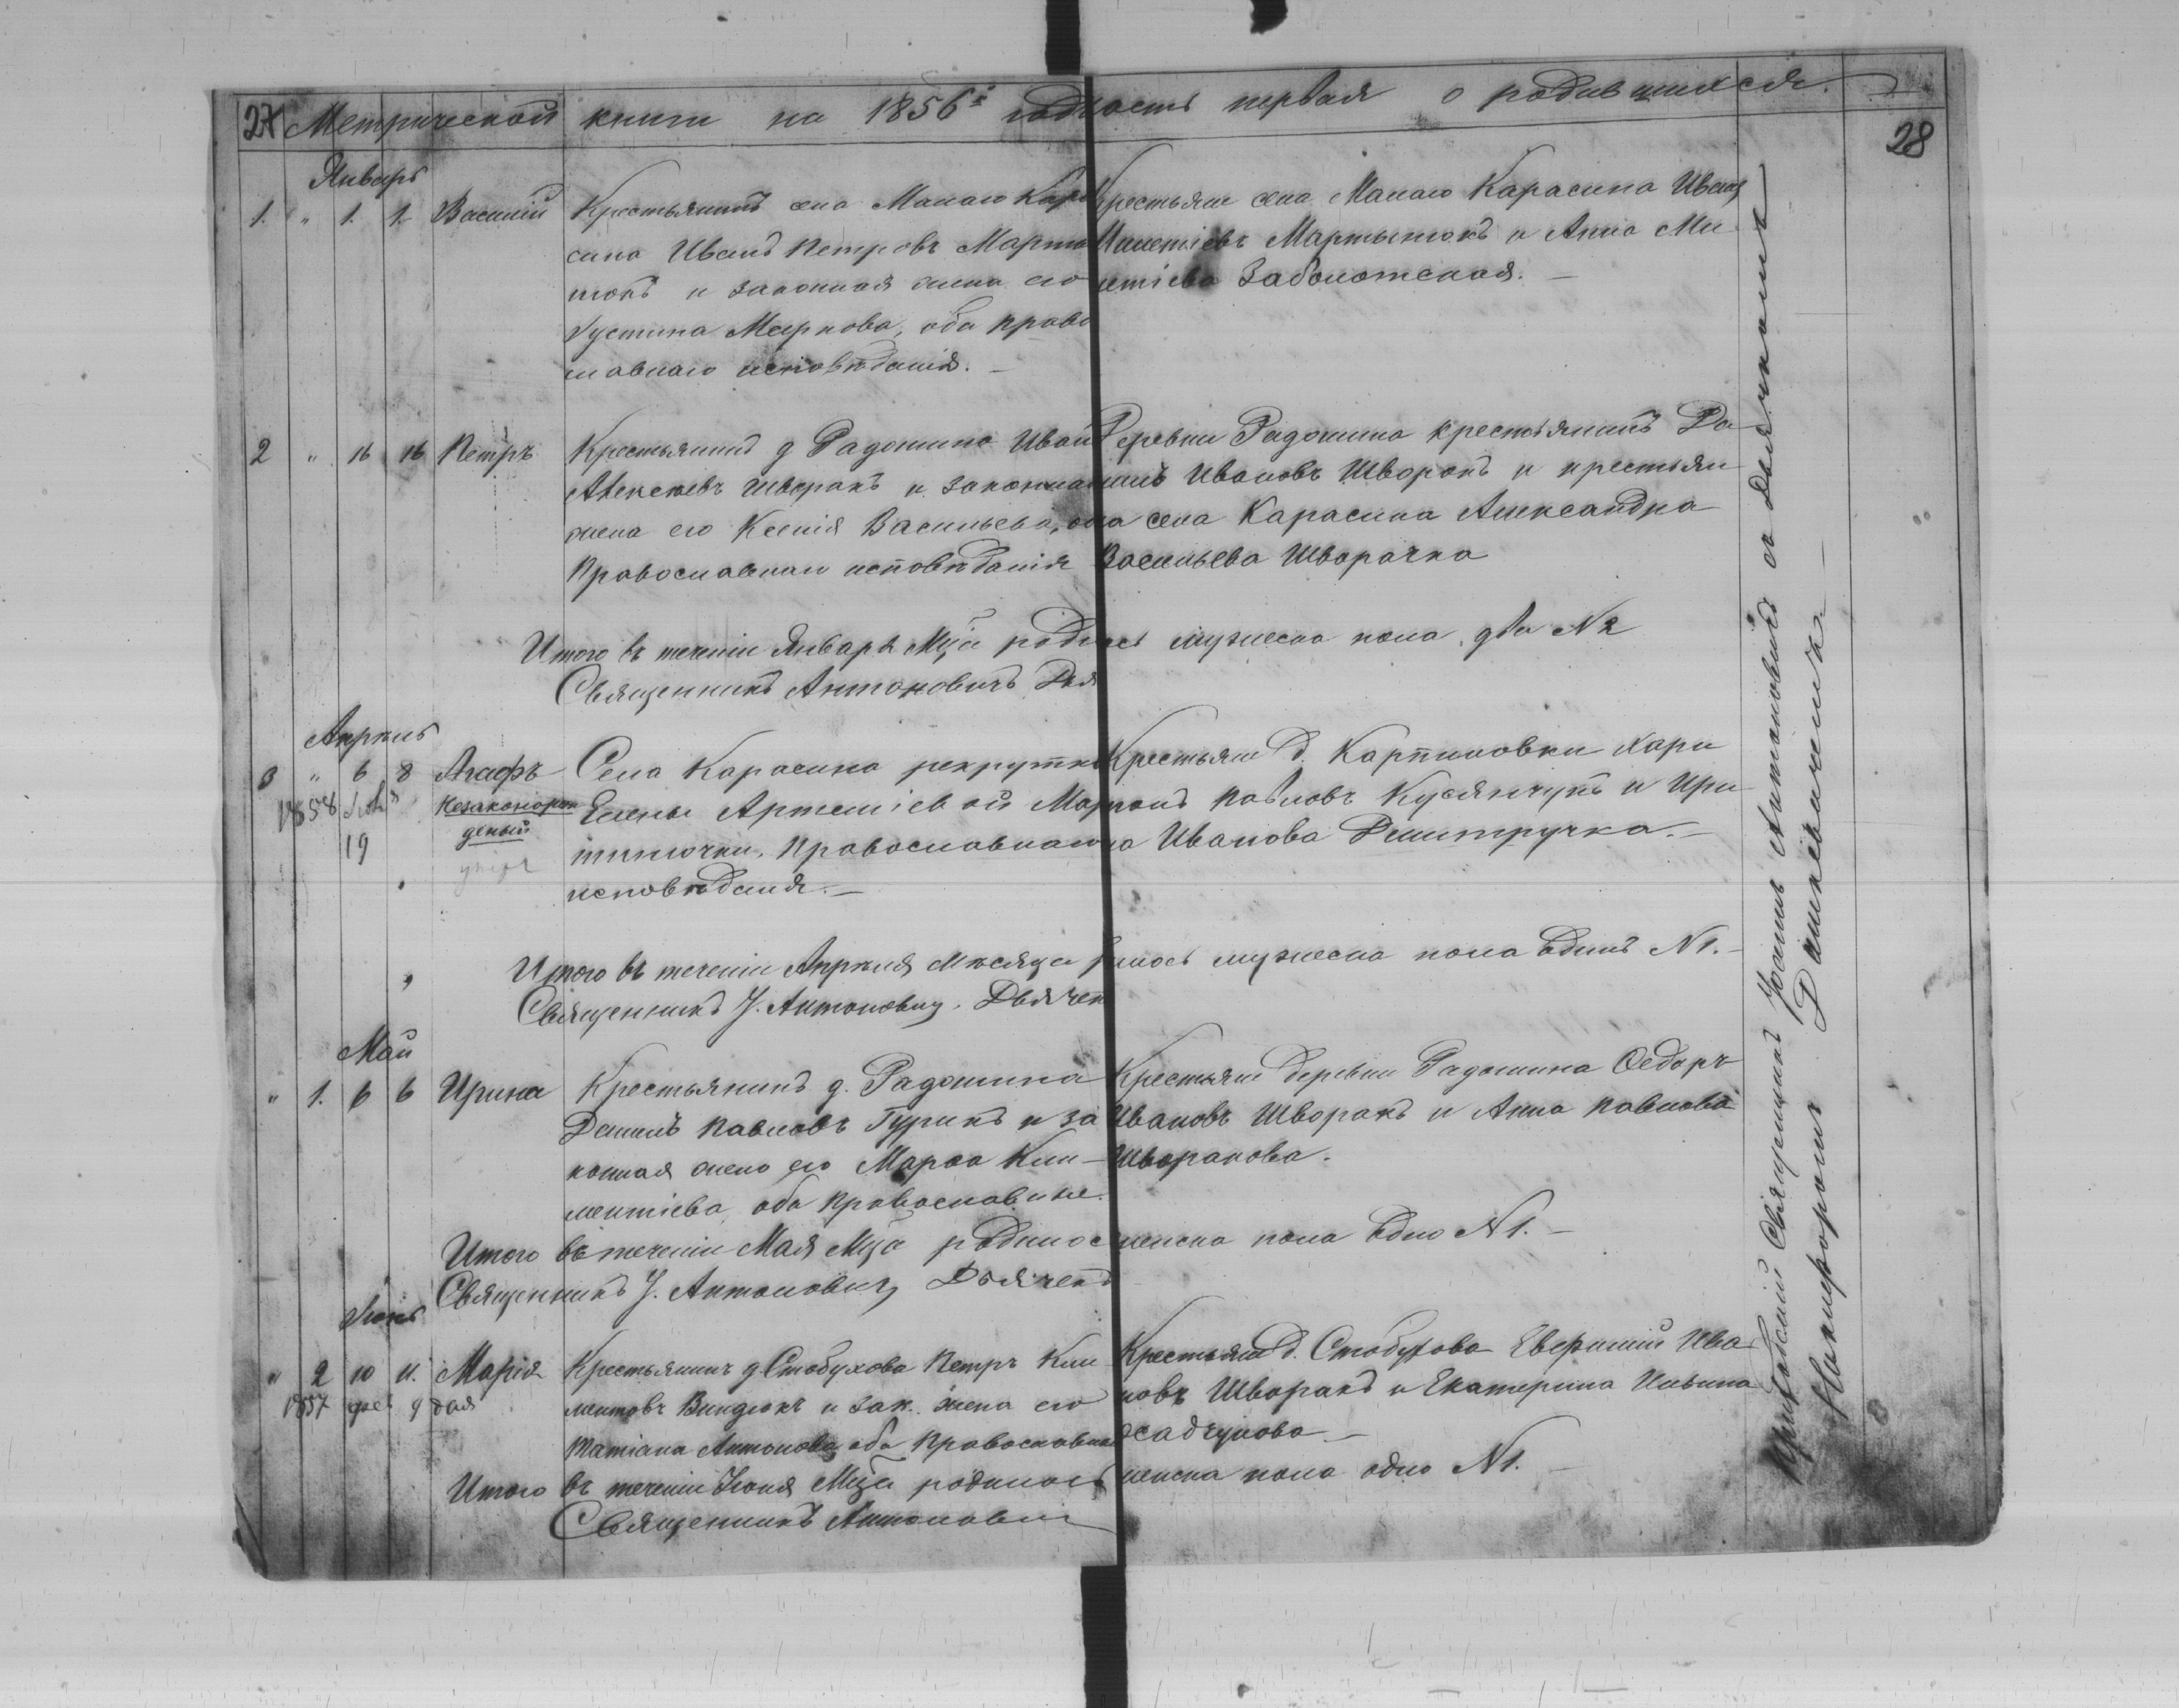 27 Метрической книги на 1856й годъ часть первая о родившихся.
28
Январь
1. " 1. 1. Василій Крестьянинъ села Малаго Кара
сина Иванъ Петровъ Марты
нюкъ и законная жена его
Іустина Маркова, оба право
славнаго исповѣданія. –
Крестьяне села Малаго Карасина Иванъ
Милетіевъ Мартынюкъ и Анна Ми
летіева Заболотская. –
2 " 16 16 Петръ Крестьянинъ д Радошина Иванъ
Алексѣевъ Шворакъ и законная
жена его Ксенія Васильева, оба
Православнаго исповѣданія
Деревни Радошина крестьянинъ Да
ніилъ Ивановъ Шворакъ и крестьян
ка села Карасина Александра
Васильева Шворачка
Итого въ теченіи Января Мца родилось мужеска пола два N 2
Священникъ Антоновичъ Дья
Апрѣль
3 " 6 8 Агафъ Села Карасина рекрутки
1858 19 Незаконорож
деный
Елены Артеміевой Мар
тынючки, Православнаго
исповѣданія. –
Крестьяне д. Карпиловки Хари
тонъ Павловъ Кусянчукъ и Ири
на Иванова Дмитручка. –
Итого въ теченіи Апрѣля мѣсяца родилось мужеска пола одинъ N 1. –
Священникъ І. Антоновичъ. Дьячек
Май
" 1. 6 6 Ирина Крестьянинъ д. Радошина
Даніилъ Павловъ Гурикъ и за
конная жена его Марѳа Кли –
ментіева, оба православные.
Крестьяне деревни Радошина Ѳедоръ
Ивановъ Шворакъ и Анна Павлова
Шворакова.
Итого въ теченіи Мая Мца родилось женска пола одно N 1. –
Священникъ І. Антоновичъ Дьячекъ
Іюнь
" 2 10 11. Марія Крестьянинъ д. Стобухова Петръ Кли
1857 фев 9 дня ментовъ Виндюкъ и зак. жена его
Татіана Антонова, оба Православные
Крестьяне д. Стобухова Евфимій Ива
новъ Шворакъ и Екатерина Ильина
Осадчукова –
Итого въ теченіи Іюня Мца родилось женска пола одно N 1. –
Священникъ Антоновичъ
Священникъ Іоаннъ Антоновичъ съ дьячкомъ
Никифоромъ Дашкевичемъ –